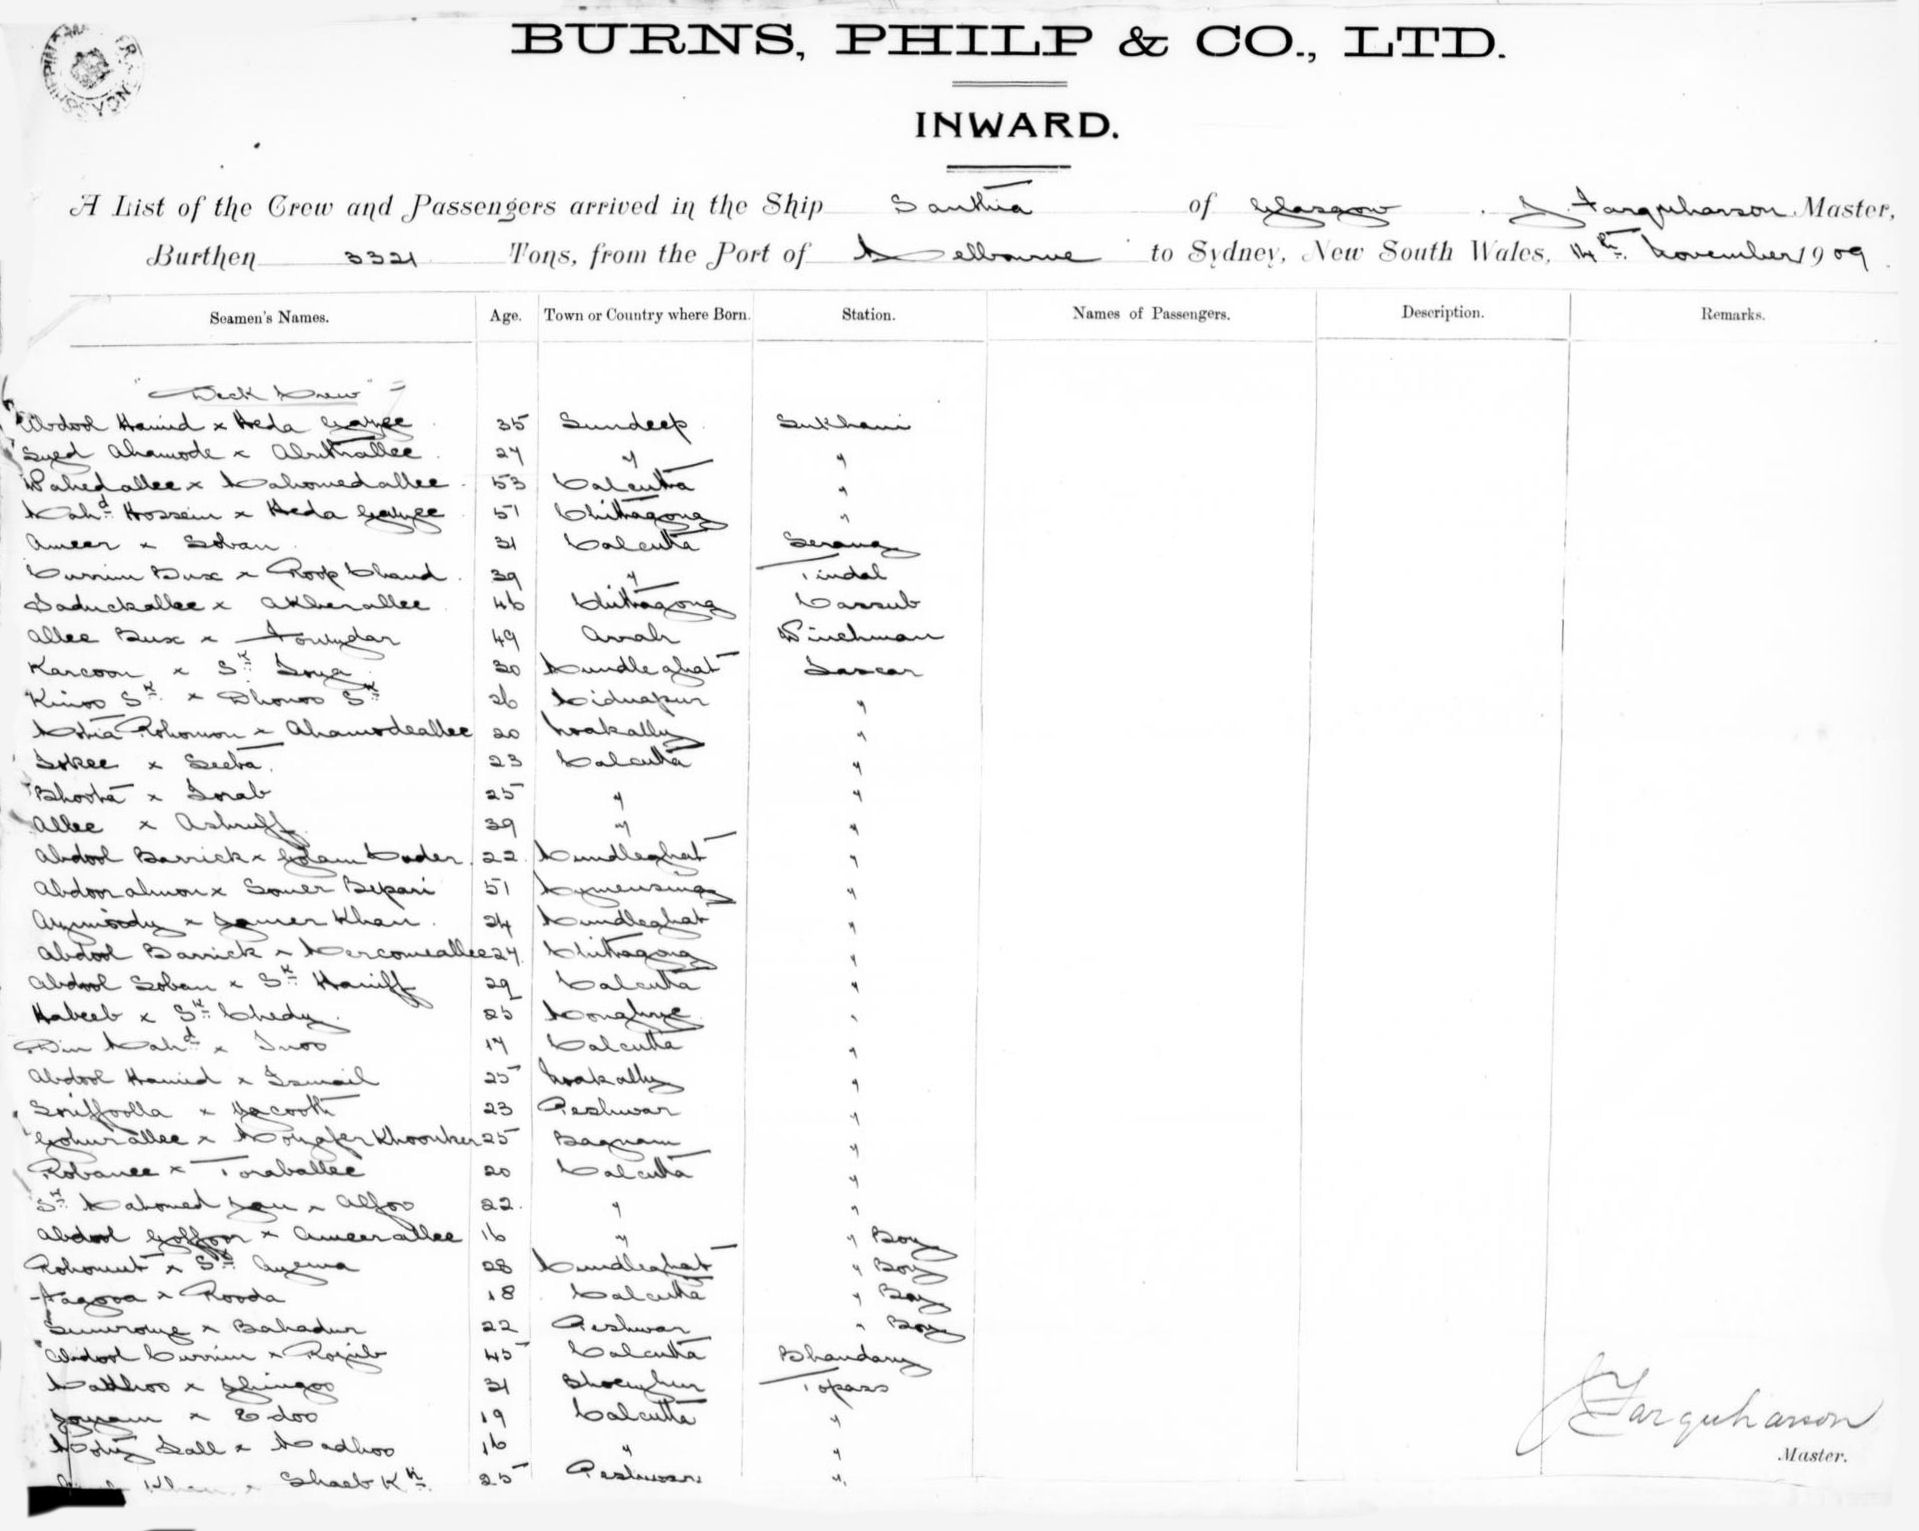 BURNS, PHILP & CO., LTD.
INWARD.
A List of the Crew and Passengers arrived in the Ship Santhia of Glasgow . J. Farquharson Master,
Burthen 3321 Tons, from the Port of Melbourne to Sydney, New South Wales, 14th November 1909
Seamen's Names. Age. Town or Country where Born. Station. Names of Passengers. Description. Remarks.
"Deck Crew"
Abdool Hamid x Heda Gazee 35 Sundeep Sukhani
Syed Ahamode x 27 " "
Wahedallee x Mahomedallee 53 Calcutta "
Mahd Hossein x Heda Gazee 51 Chittagong "
Ameer x Soban 31 Calcutta Serang
Currim Bux x Roop Chand 39 " Tindal
Saduckallee x Akberallee 46 Chittagong Cassub
Allee Bux x 49 Arrah Winchman
Karcoon x Sk 30 Mundleghat Lascar
Kinoo Sk x Dhonoo Sk 26 Midnapur "
Motia Rohomon x Ahamodeallee 20 Noakally "
x Seeba 23 Calcutta "
x Torab 25 " "
Allee x Ashruff 39 " "
Abdool Barrick x Golam Cader 22 Mundleghat "
x Somer Bepari 51 Mymensing "
x Khan 24 Mundleghat "
Abdool Barrick x 27 Chittagong "
Abdool Soban x Sk Haniff 29 Calcutta "
Habeeb x Sk Chedy 25 Monghye "
Din Mahd x 17 Calcutta "
Abdool Hamid x Ismail 25 Noakally "
x 23 Peshwar "
Gohurallee x 25 Bagnam "
Robanee x Toraballee 20 Calcutta "
Sk Mahomed Jan x Alfoo 22 " "
Abdool Goffoor x Ameerallee 16 " " Boy
Rohomut x Sk 28 Mundleghat " Boy
Fagooa x Rooda 18 Calcutta " Boy
x Bahadur 22 Peshwar " Boy
Abdool Currim x Rojub 45 Calcutta Bhandary
x 31 Topass
x Edoo 19 Calcutta "
Lall x Madhoo 16 " "
Khan x Shaeb Kh 25 Peshwar "
J Farquharson
Master.